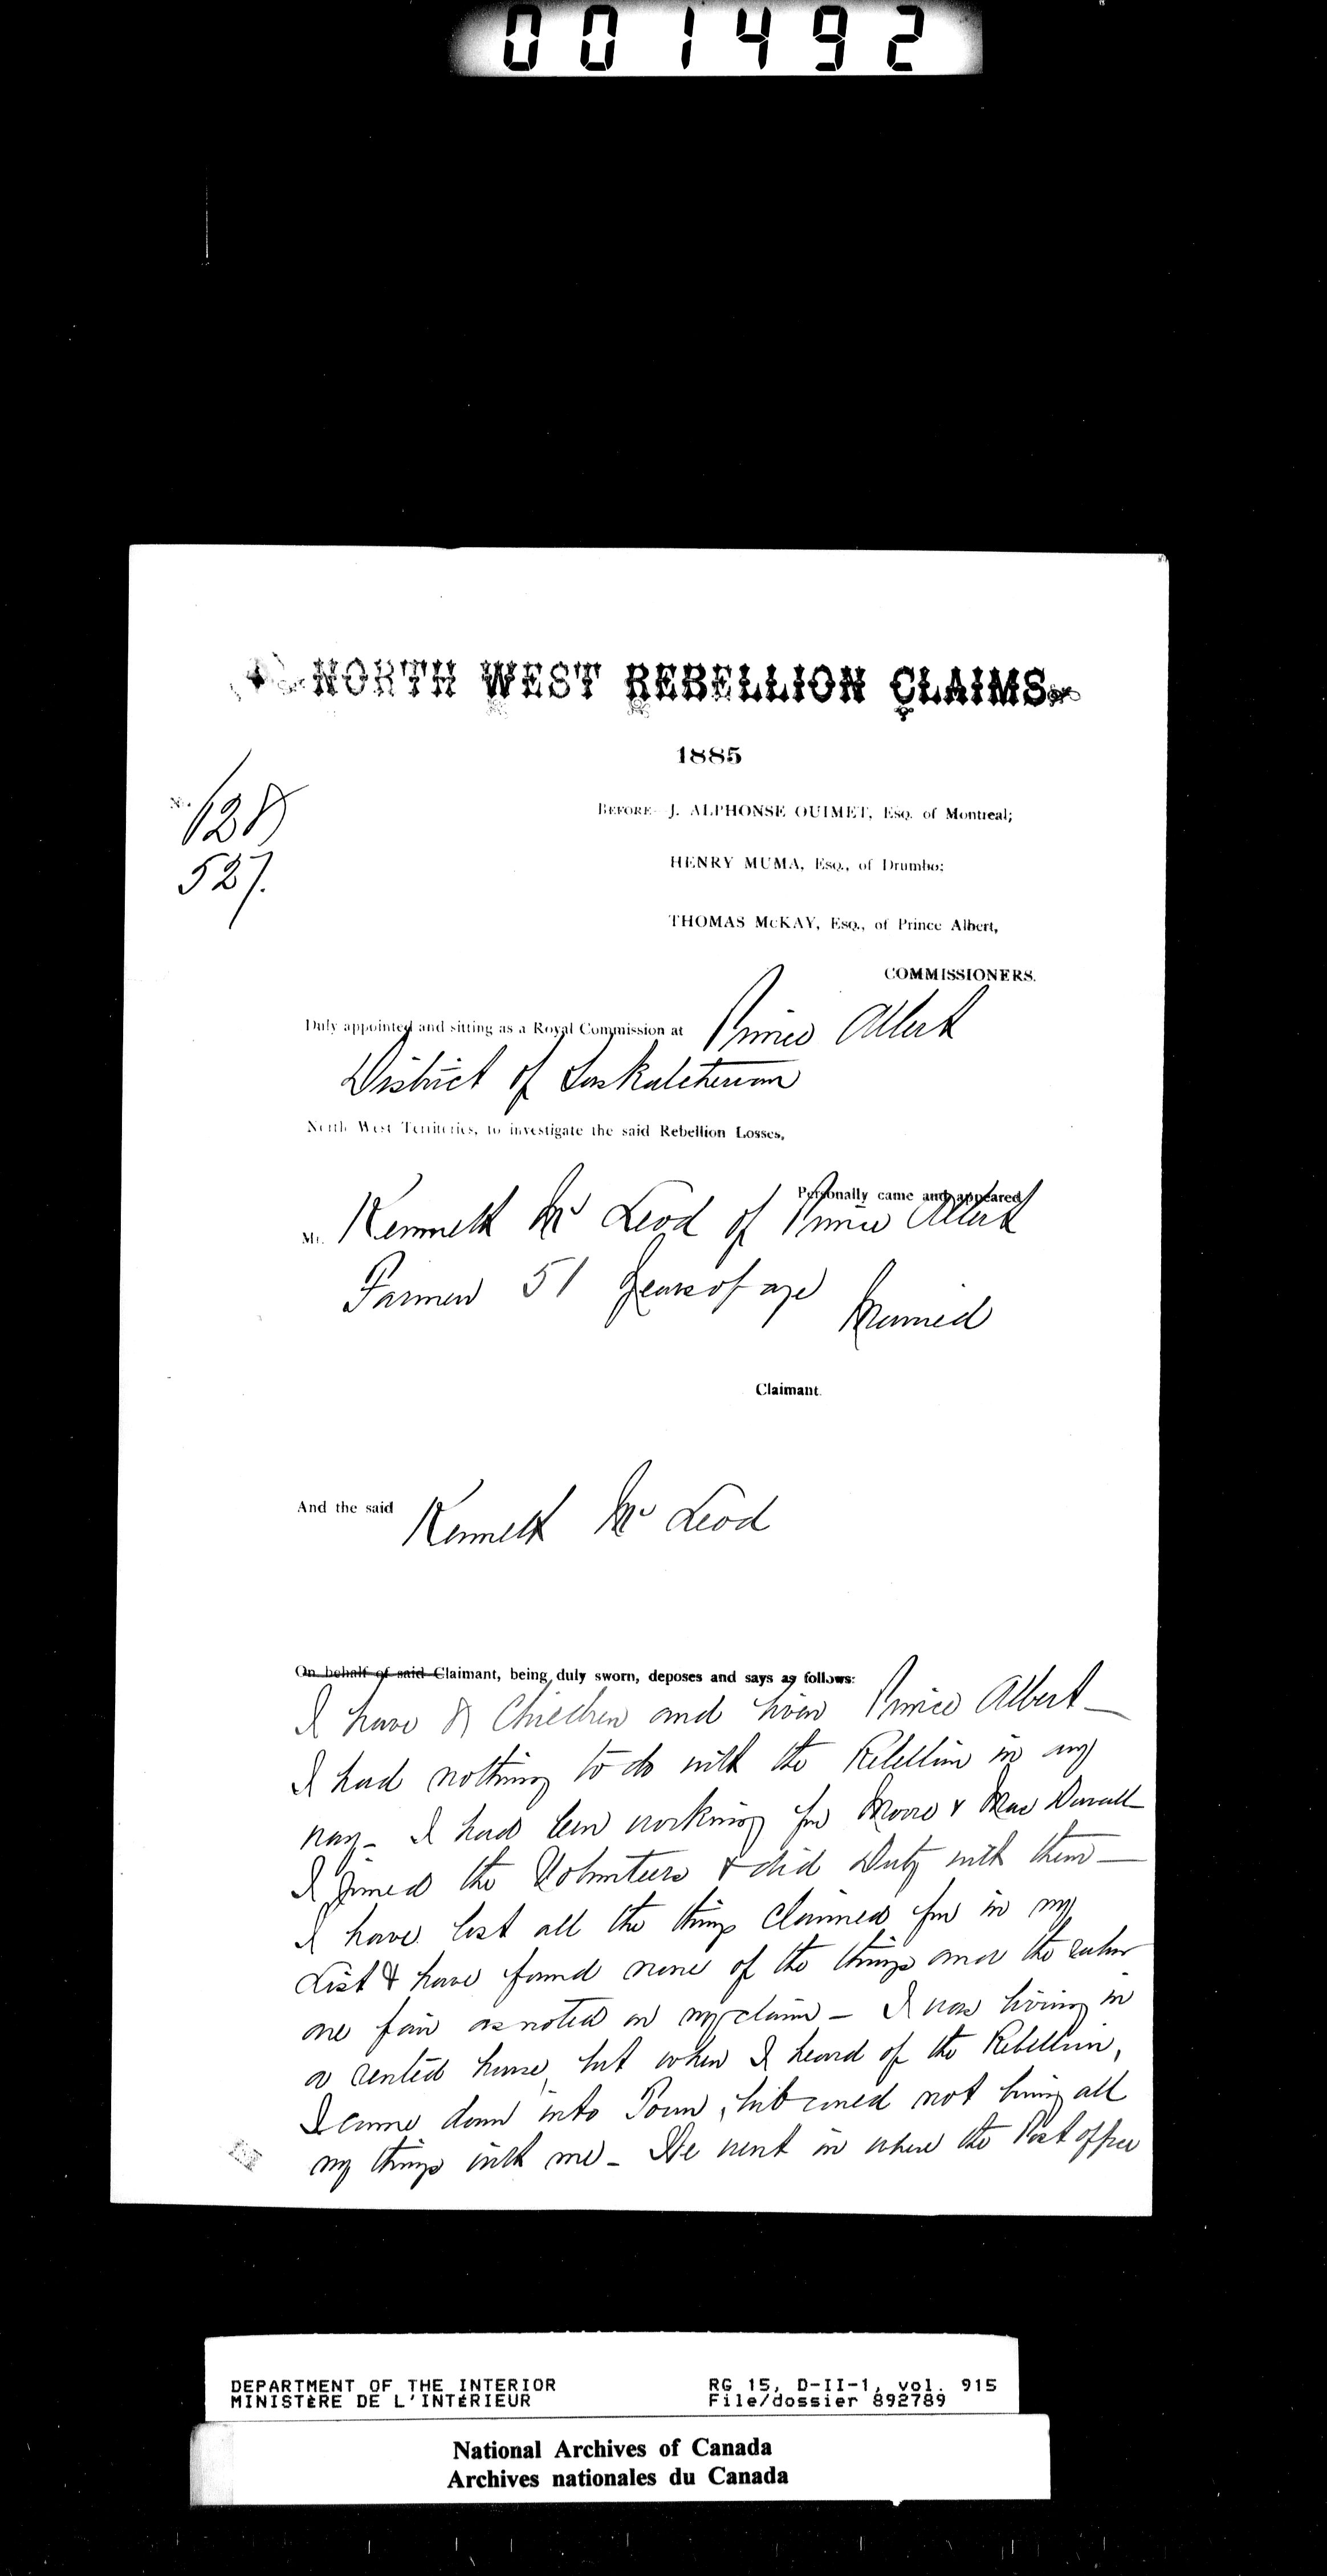 001492
NORTH WEST REBELLION CLAIMS.
1885
No. 628
527.
BEFORE J. ALPHONSE OUIMET, Esq. of Montreal;
HENRY MUMA, Esq., of Drumbo;
THOMAS McKAY, Esq., of Prince Albert,
COMMISSIONERS.
Duly appointed and sitting as a Royal Commission at Prince Albert
District of Saskatchewan
North West Territories, to investigate the said Rebellion Losses,
Personally came and appeared
Mr. Kenneth Mc Leod of Prince Albert
Farmer 51 years of age Married
Claimant.
And the said Kenneth Mc Leod
On behalf of said Claimant, being duly sworn, deposes and says as follows:
I have 8 Children and live in Prince Albert —
I had nothing to do with the Rebellion in any
way - I had been working for Moore & Mac Dowall
I joined the Volunteers & did Duty with them —
I have lost all the things claimed for in my
List & have found none of the things
one as noted on my claim - I was living in
a rented house, but when I heard of the Rebellion,
I came down into Town, but could not bring all
my things with me - We went in where the Post office
DEPARTMENT OF THE INTERIOR
MINISTÈRE DE L'INTÉRIEUR
RG 15, D-II-1, vol. 915
File/dossier 892789
National Archives of Canada
Archives nationales du Canada